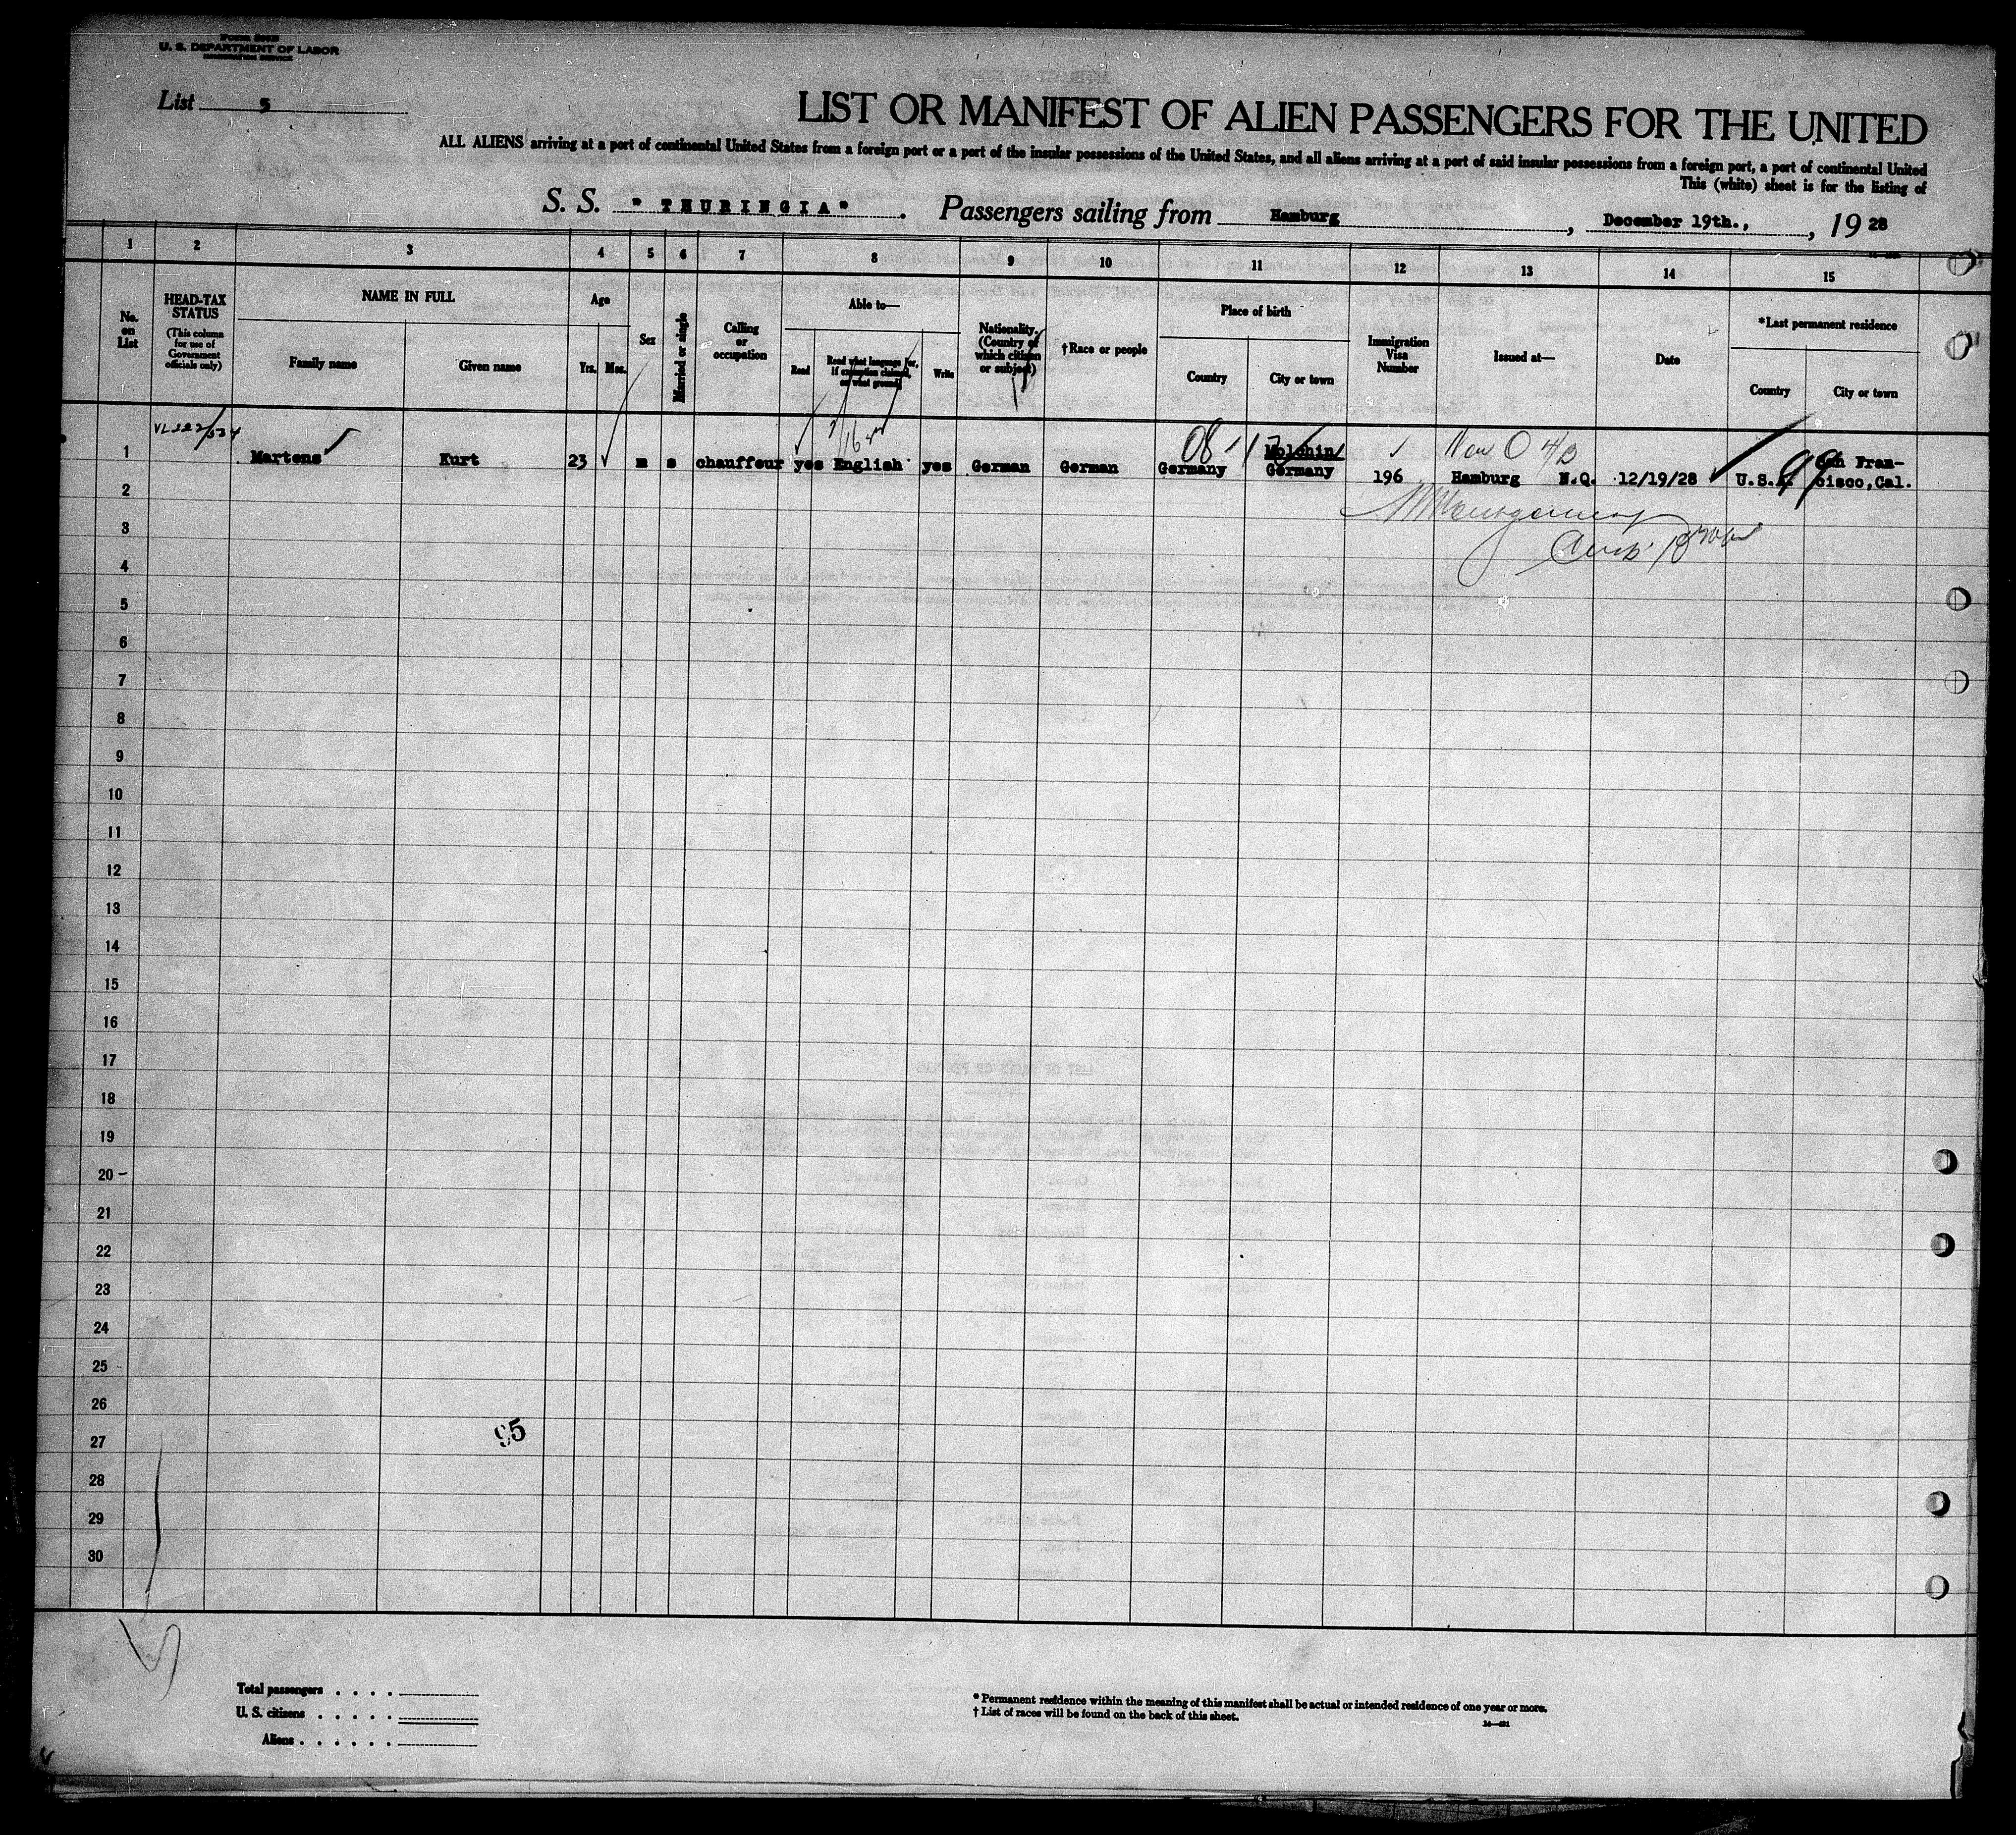 U. S. DEPARTMENT OF LABOR
IMMIGRATION SERVICE
List 5
LIST OR MANIFEST OF ALIEN PASSENGERS FOR THE UNITED
ALL ALIENS arriving at a port of continental United States from a foreign port or a port of the insular possessions of the United States, and all aliens arriving at a port of said insular possessions from a foreign port, a port of continental United
This (white) sheet is for the listing of
S. S. "THURINGIA". Passengers sailing from Hamburg, December 19th., , 19 28
1 2 3 4 5 6 7 8 9 10 11 12 13 14 15
No. on List
HEAD-TAX STATUS
(This column for use of Government officials only)
NAME IN FULL
Family name
Given name
Age
Yrs. Mos.
Sex
Married or single
Calling or occupation
Able to—
Read
Read what language [or, if exemption claimed, on what ground]
Write
Nationality. (Country of which citizen or subject)
†Race or people
Place of birth
Country
City or town
Immigration Visa Number
Issued at—
Date
*Last permanent residence
Country
City or town
1 Martens Kurt 23 m s chauffeur yes English yes German German Germany Molchin Germany 196 Hamburg N.Q. 12/19/28 U.S.A. San Fran-
cisco, Cal.
08-
99
2
3
4
5
6
7
8
9
10
11
12
13
14
15
16
17
18
19
20
21
22
23
24
25
26
27
28
29
30
95
Total passengers . . . .
U. S. citizens . . . . .
Aliens . . . . . .
* Permanent residence within the meaning of this manifest shall be actual or intended residence of one year or more.
† List of races will be found on the back of this sheet.